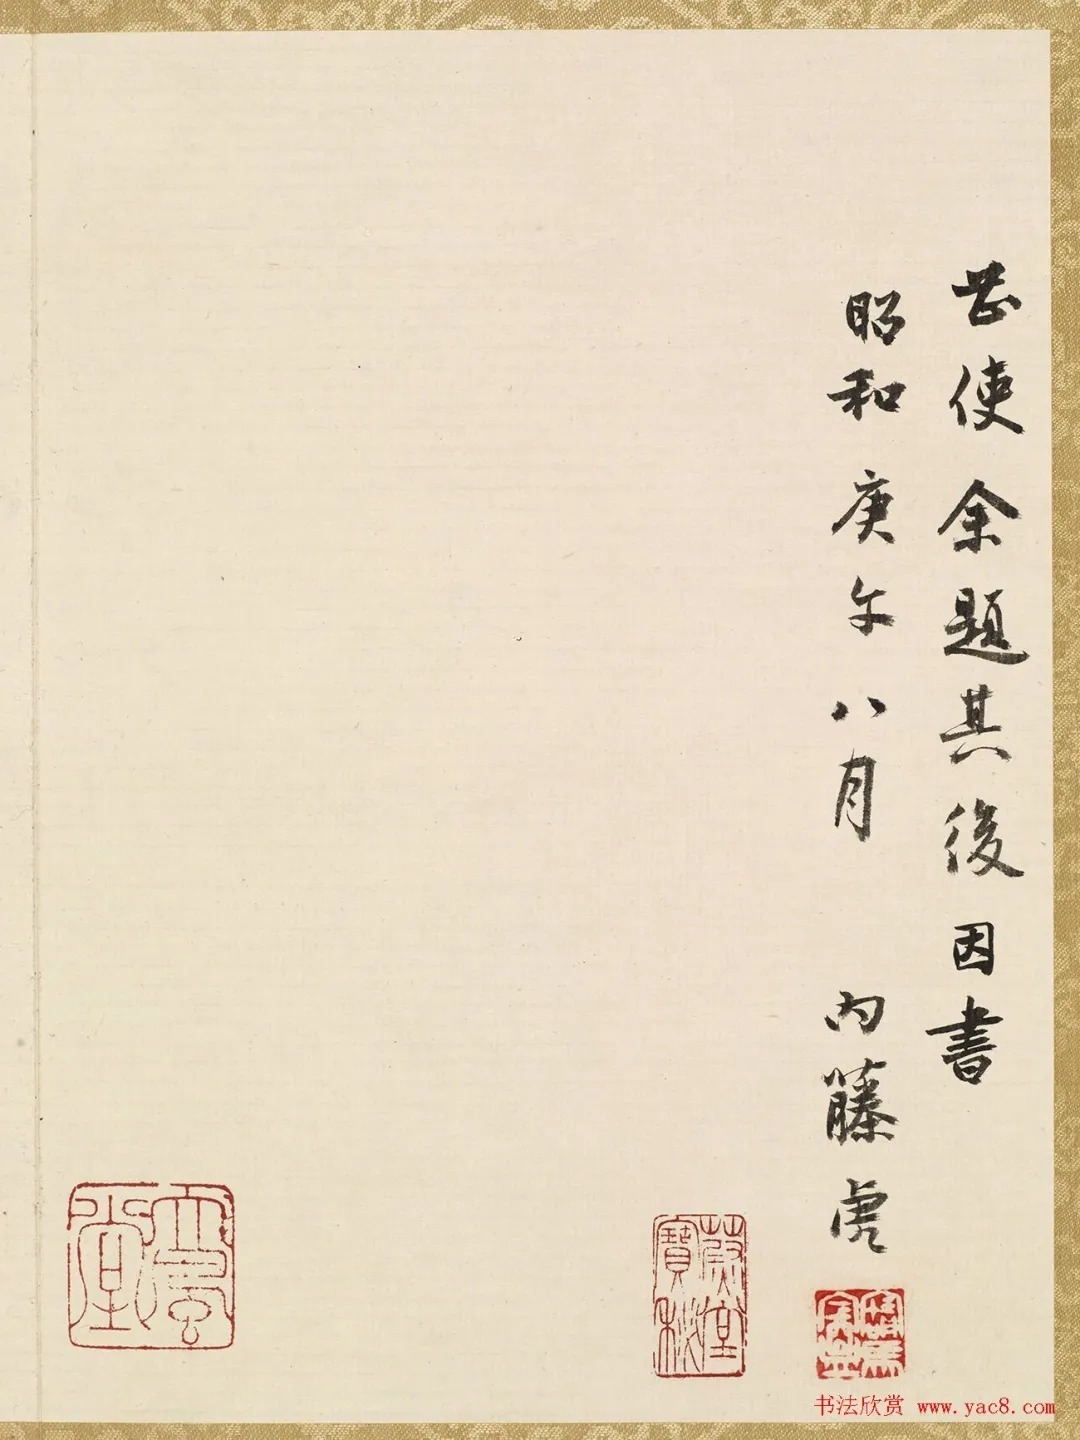 使余題其後因書
昭和庚午八月 内藤虎
蔚堂
寶秘
书法欣赏 www.yac8.com